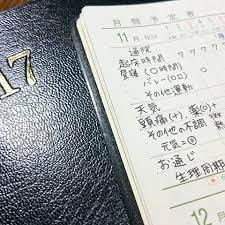 17
月間予定表
11月 NOV
通院
起床時間 7 7 7 7
昼寝(〇時間)
バレー(OD)
その他運動
天気
頭痛(+) 薬(◎)
その他の不調
元気=◎
お通じ
生理周期
12